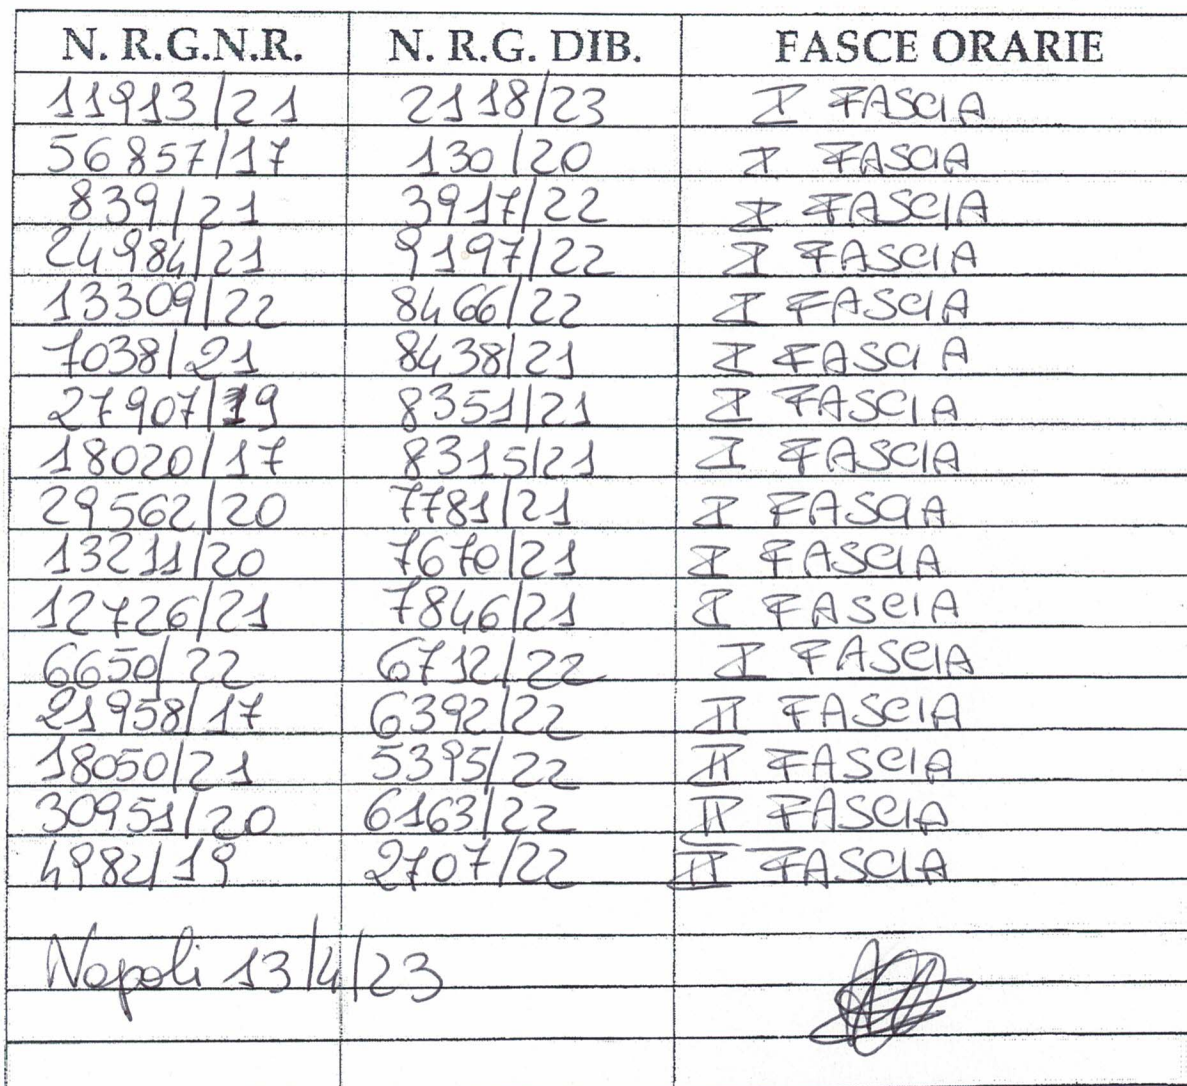 N. R.G.N.R. N. R.G. DIB. FASCE ORARIE
11913/21 2118/23 I FASCIA
56857/17 130/20 I FASCIA
839/21 3917/22 I FASCIA
24984/21 9197/22 I FASCIA
13309/22 8466/22 I FASCIA
7038/21 8438/21 I FASCIA
27907/19 8351/21 I FASCIA
18020/17 8315/21 I FASCIA
29562/20 7781/21 I FASCIA
13211/20 7670/21 I FASCIA
12726/21 7846/21 I FASCIA
6650/22 6712/22 I FASCIA
21958/17 6392/22 II FASCIA
18050/21 5395/22 II FASCIA
30951/20 6163/22 II FASCIA
4982/19 2707/22 II FASCIA
Napoli 13/4/23